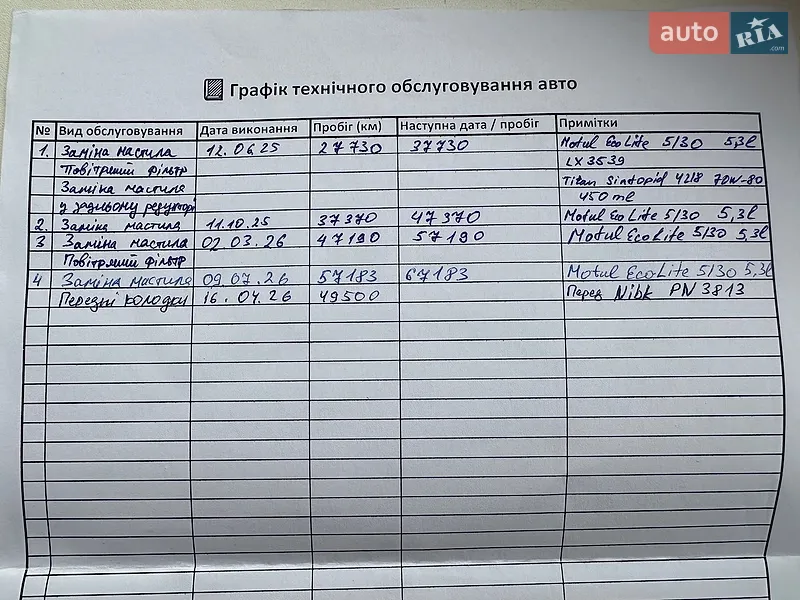 auto RIA .com
Графік технічного обслуговування авто
№ Вид обслуговування Дата виконання Пробіг (км) Наступна дата / пробіг Примітки
1. Заміна мастила 12.06.25 27730 37730 Motul EcoLite 5/30 5,3l
Повітряний фільтр LX 3539
Заміна мастила Titan Sintopid 4218 70W-80
у задньому редукторі 450 ml
2. Заміна мастила 11.10.25 37370 47370 Motul EcoLite 5/30 5,3l
3 Заміна мастила 02.03.26 47190 57190 Motul EcoLite 5/30 5,3l
Повітряний фільтр
4 Заміна мастила 09.07.26 57183 67183 Motul EcoLite 5/30 5,3l
Передні колодки 16.04.26 49500 Перед Nibk PN 3813